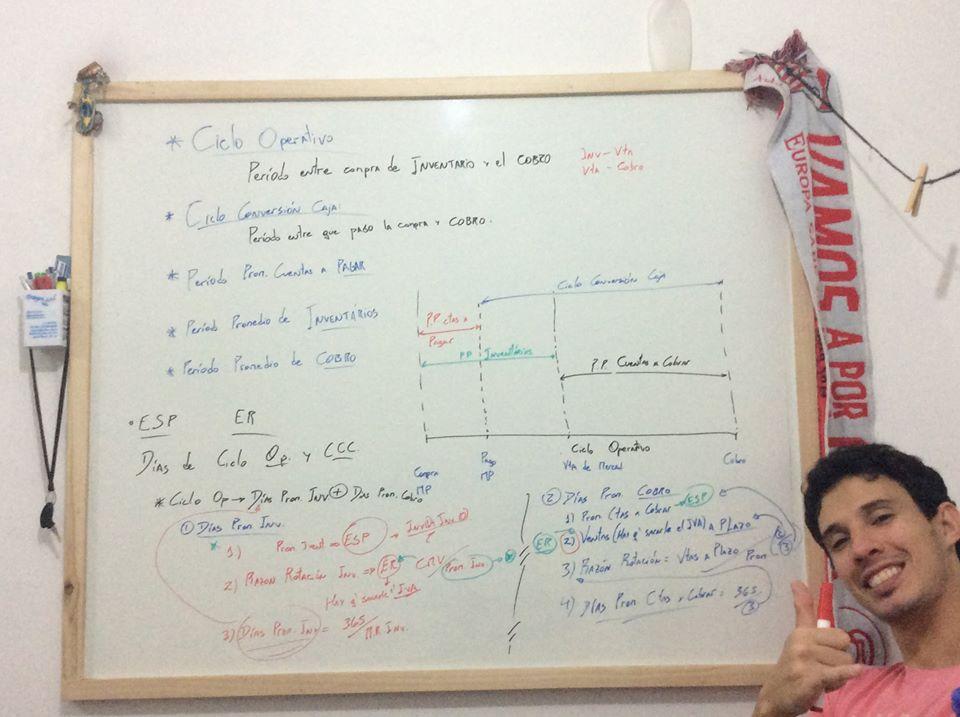 * Ciclo Operativo
Período entre compra de INVENTARIO y el COBRO
INV - Vta
Vta - Cobro
* Ciclo Conversión Caja:
Período entre que pago la compra y COBRO.
* Período Prom. Cuentas a PAGAR
* Período Promedio de INVENTÁRIOS
* Período Promedio de COBRO
Ciclo Conversión Caja
P.P ctas a
Pagar
PP Inventários
P.P. Cuentas a Cobrar
Ciclo Operativo
Compra
MP
Pago
MP
Vta de Mercad.
Cobro
• ESP ER
Días de Ciclo Op. y CCC.
* Ciclo Op → Días Pron. INV + Días Pron. Cobro
① Días Pron Inv.
1) Pron Inv → ESP →
2) RAZON Rotación Inv. → ER CMV Pron. Inv.
Hay q' sacarle IVA
3) Días Pron. Inv = 365/ Inv.
② Días Pron COBRO
1) Pron Ctas a Cobrar → ESP
ER 2) Ventas (Hay q' sacarle el IVA) a PLAZO
3) RAZÓN Rotación = Vtas a Plazo Pron 2/3
4) Días Pron Ctas x Cobrar = 365/③
VAMOS A POR
EUROPA